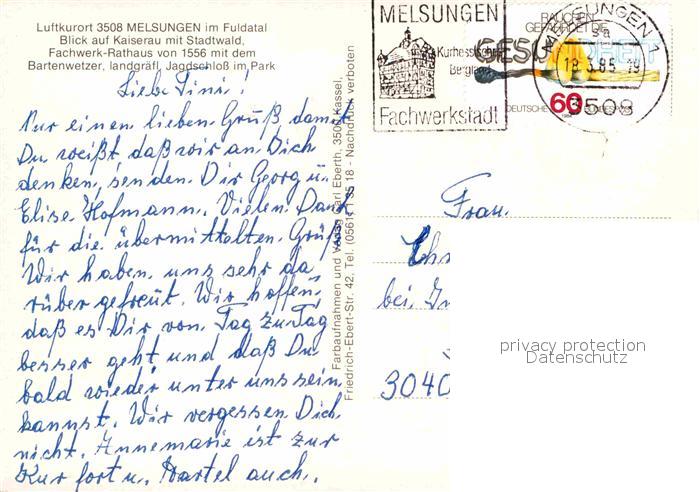 Luftkurort 3508 MELSUNGEN im Fuldatal
Blick auf Kaiserau mit Stadtwald,
Fachwerk-Rathaus von 1556 mit dem
Bartenwetzer, landgräfl. Jagdschloß im Park
Liebe Tini!
Nur einen lieben Gruß damit
Du weißt daß wir an Dich
denken, senden Dir Georg u.
Elise Hofmann. Vielen Dank
für die übermittelten Grüße
Wir haben uns sehr da
rüber gefreut. Wir hoffen,
daß es Dir von Tag zu Tag
besser geht und daß Du
bald wieder unter uns sein
kannst. Wir vergessen Dich
nicht. Annemarie ist zur
Kur fort u. Martel auch.
Farbaufnahmen und Verlag Carl Eberth, 3500 Kassel,
Friedrich-Ebert-Str. 42, Tel. (0561) 1 38 18 - Nachdruck verboten
MELSUNGEN
Kurhessisches
Bergland
Fachwerkstadt
RAUCHEN
GEFÄHRDET DIE
GESUNDHEIT
60
DEUTSCHE BUNDESPOST
MELSUNGEN 1
sa
18.3.85-19
3508
Frau
bei
3040
privacy protection
Datenschutz